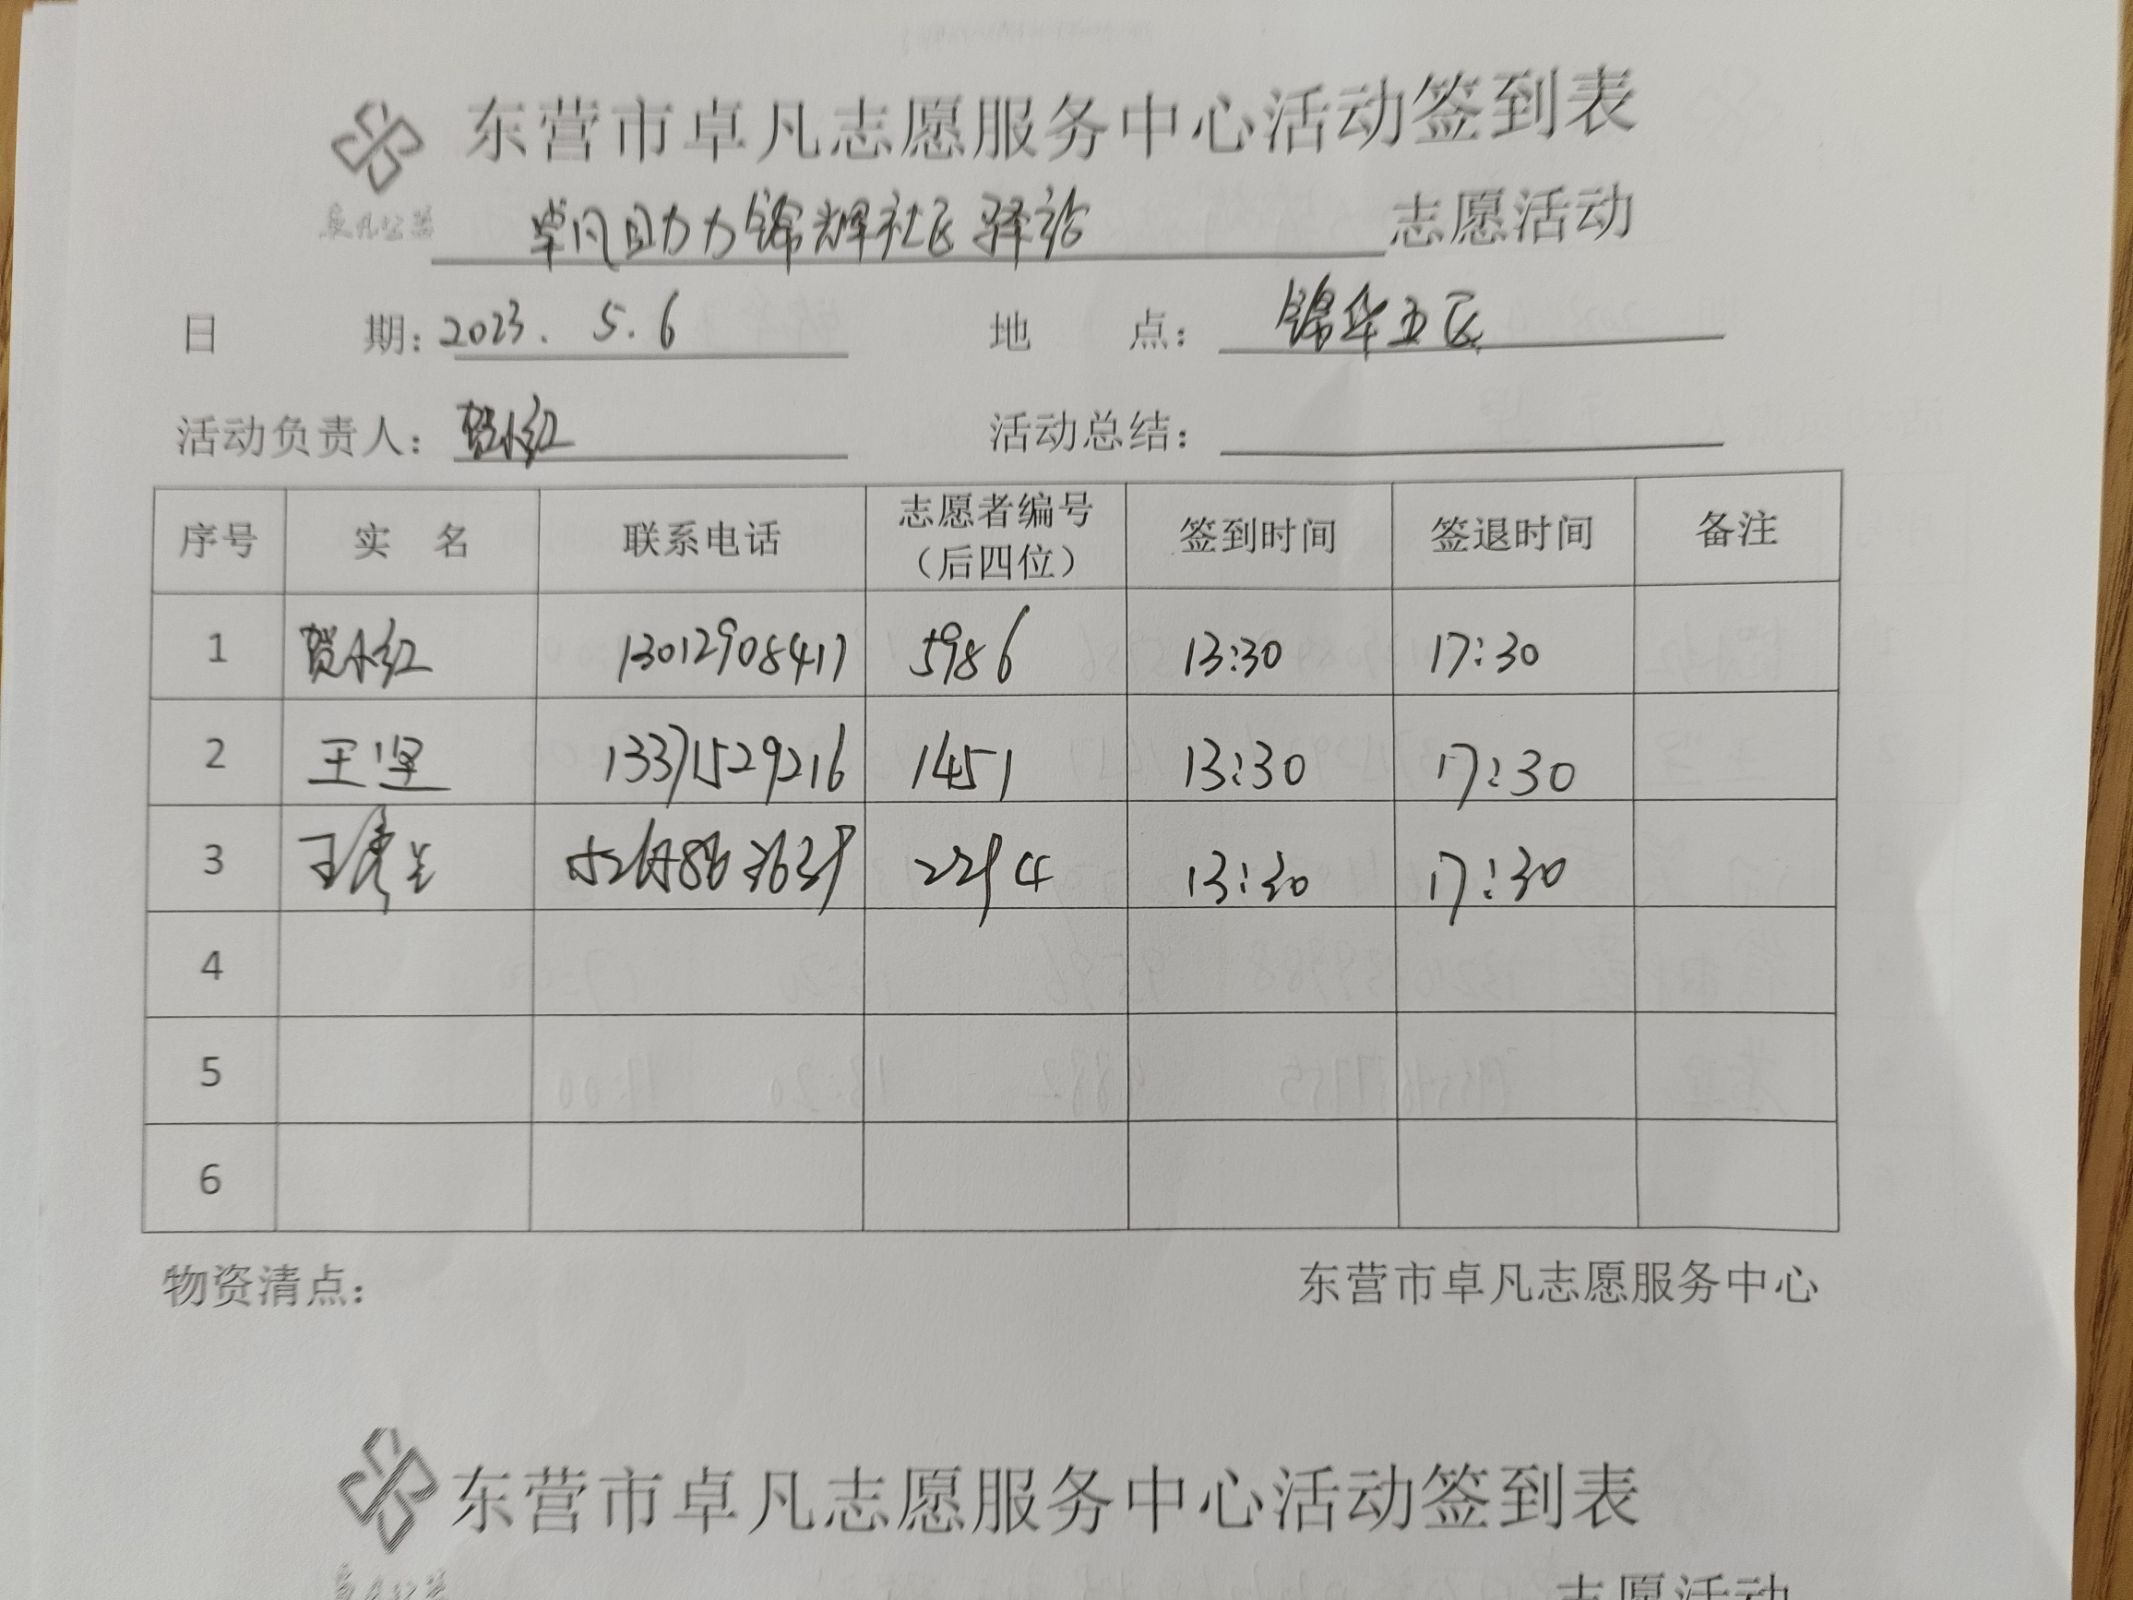 东营市卓凡志愿服务中心活动签到表
卓凡公益
卓凡助力锦辉社区驿站 志愿活动
日 期：2023.5.6 地 点：锦华五区
活动负责人：贺小红 活动总结：
序号 实 名 联系电话 志愿者编号（后四位） 签到时间 签退时间 备注
1 贺小红 13012908417 5986 13:30 17:30
2 王坚 13371529216 1451 13:30 17:30
3 王 2294 13:30 17:30
4
5
6
物资清点： 东营市卓凡志愿服务中心
东营市卓凡志愿服务中心活动签到表
卓凡公益
志愿活动